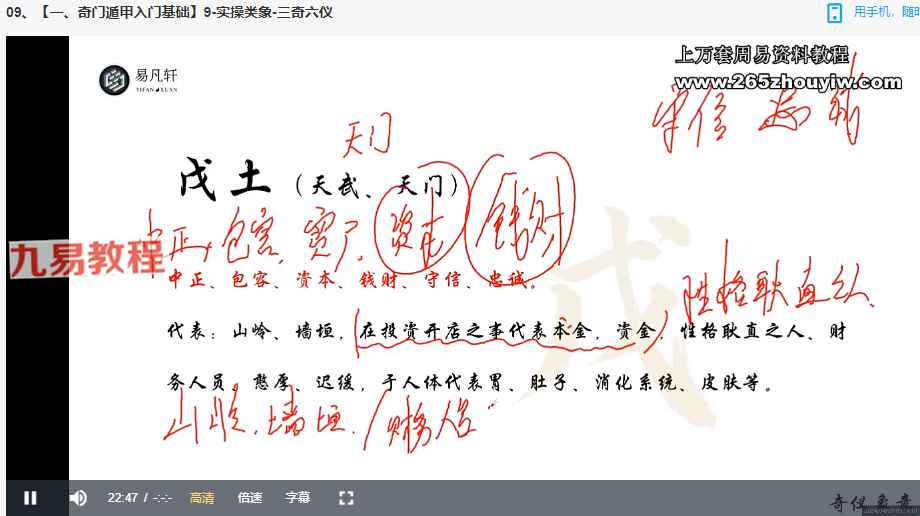 09、【一、奇门遁甲入门基础】9-实操类象-三奇六仪
用手机，随时
易凡轩
YIFAN XUAN
上万套周易资料教程
www.265zhouyiw.com
守信 忠诚
天门
戊土（天武、天门）
中正，包容，宽厚，资本 钱财
九易教程
中正、包容、资本、钱财、守信、忠诚。
性格耿直
代表：山岭、墙垣，在投资开店之事代表本金，资金，性格耿直之人、财
务人员。憨厚、迟缓，于人体代表胃、肚子、消化系统、皮肤等。
山岭，墙垣．财务人员
戊
22:47 / -:-:-
高清
倍速
字幕